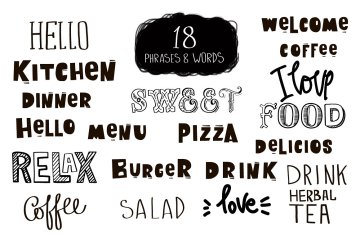 HELLO
18
PHRASES & WORDS
WELCOME
COFFEE
KITCHEN
DINNER
SWEET
I love
FOOD
Hello
MENU
PIZZA
DELICIOS
RELAX
BURGER
DRINK
DRINK
HERBAL
TEA
Coffee
SALAD
love